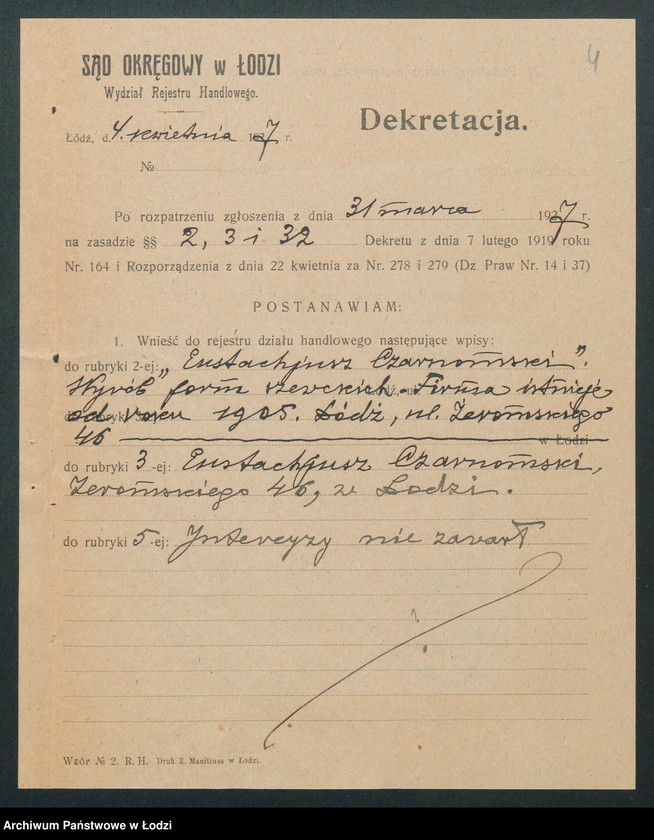 4
SĄD OKRĘGOWY w ŁODZI
Wydział Rejestru Handlowego.
Łódź, d. 4. kwietnia 1927 r.
Dekretacja.
№
Po rozpatrzeniu zgłoszenia z dnia 31 marca 1927 r.
na zasadzie §§ 2, 3 i 32 Dekretu z dnia 7 lutego 1919 roku
Nr. 164 i Rozporządzenia z dnia 22 kwietnia za Nr. 278 i 279 (Dz. Praw Nr. 14 i 37)
POSTANAWIAM:
1. Wnieść do rejestru działu handlowego następujące wpisy:
do rubryki 2-ej: „Eustachjusz Czarnomski".
Wyrób form szewckich. Firma istnieje
od roku 1905. Łódź, ul. Żeromskiego
46 w Łodzi
do rubryki 3-ej: Eustachjusz Czarnomski,
Żeromskiego 46, w Łodzi.
do rubryki 5-ej: Intercyzy nie zawarł
Wzór № 2. R. H. Druk Z. Manitiusa w Łodzi.
Archiwum Państwowe w Łodzi